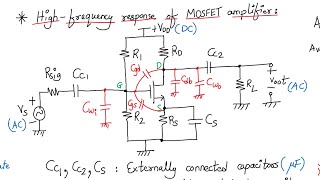 * High-frequency response of MOSFET amplifier:
+VDD (DC)
R1
RD
D
CC2
Rsig
CC1
G
Cgd
Csb
Cwo
RL
vout
(AC)
Vs
(AC)
Cwi
Cgs
R2
S
RS
CS
CC1, CC2, CS : Externally connected capacitors (μF)